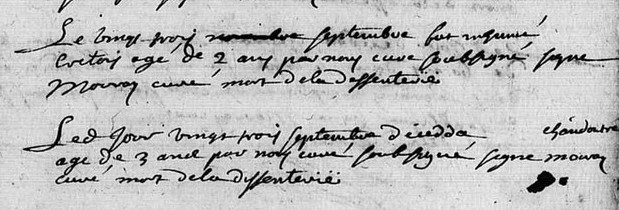 Le vingt trois novembre septembre fut inhumé
agé de 2 ans par nous curé soubsigné signe
Mouray curé mort de la dissenterië
Led jour vingt trois septembre décedda
age de 3 ans par nous curé soubsigné signe mouray
curé mort de la dissenterië